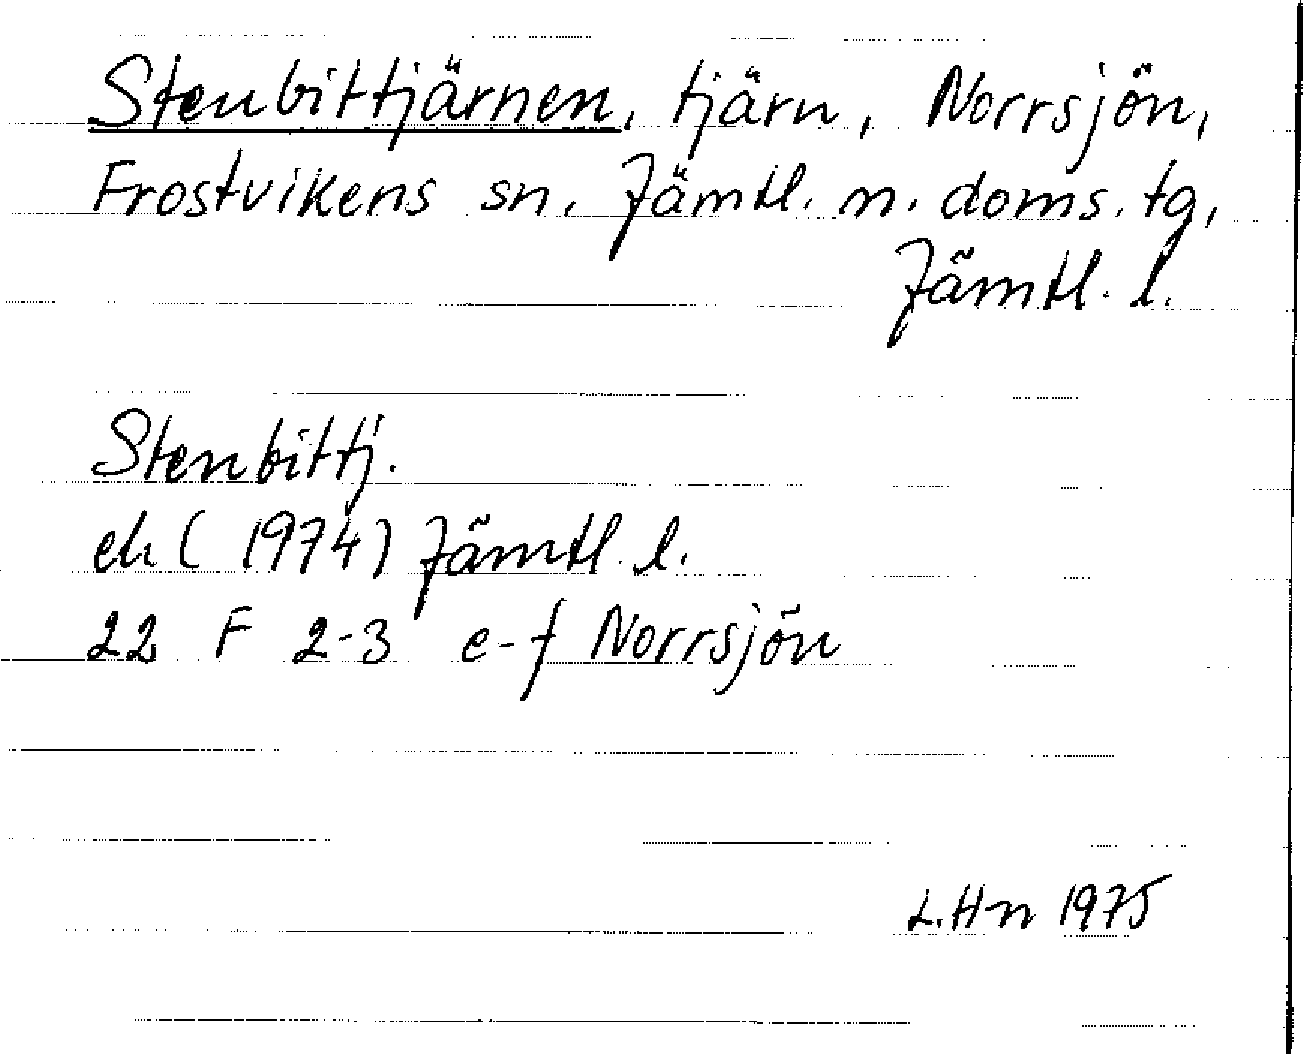 Stenbittjärnen, tjärn, Norrsjön,
Frostvikens sn, Jämtl. n. doms. tg,
Jämtl. l.
Stenbittj.
ek (1974) Jämtl. l.
22 F 2-3 e-f Norrsjön
L.Hn 1975